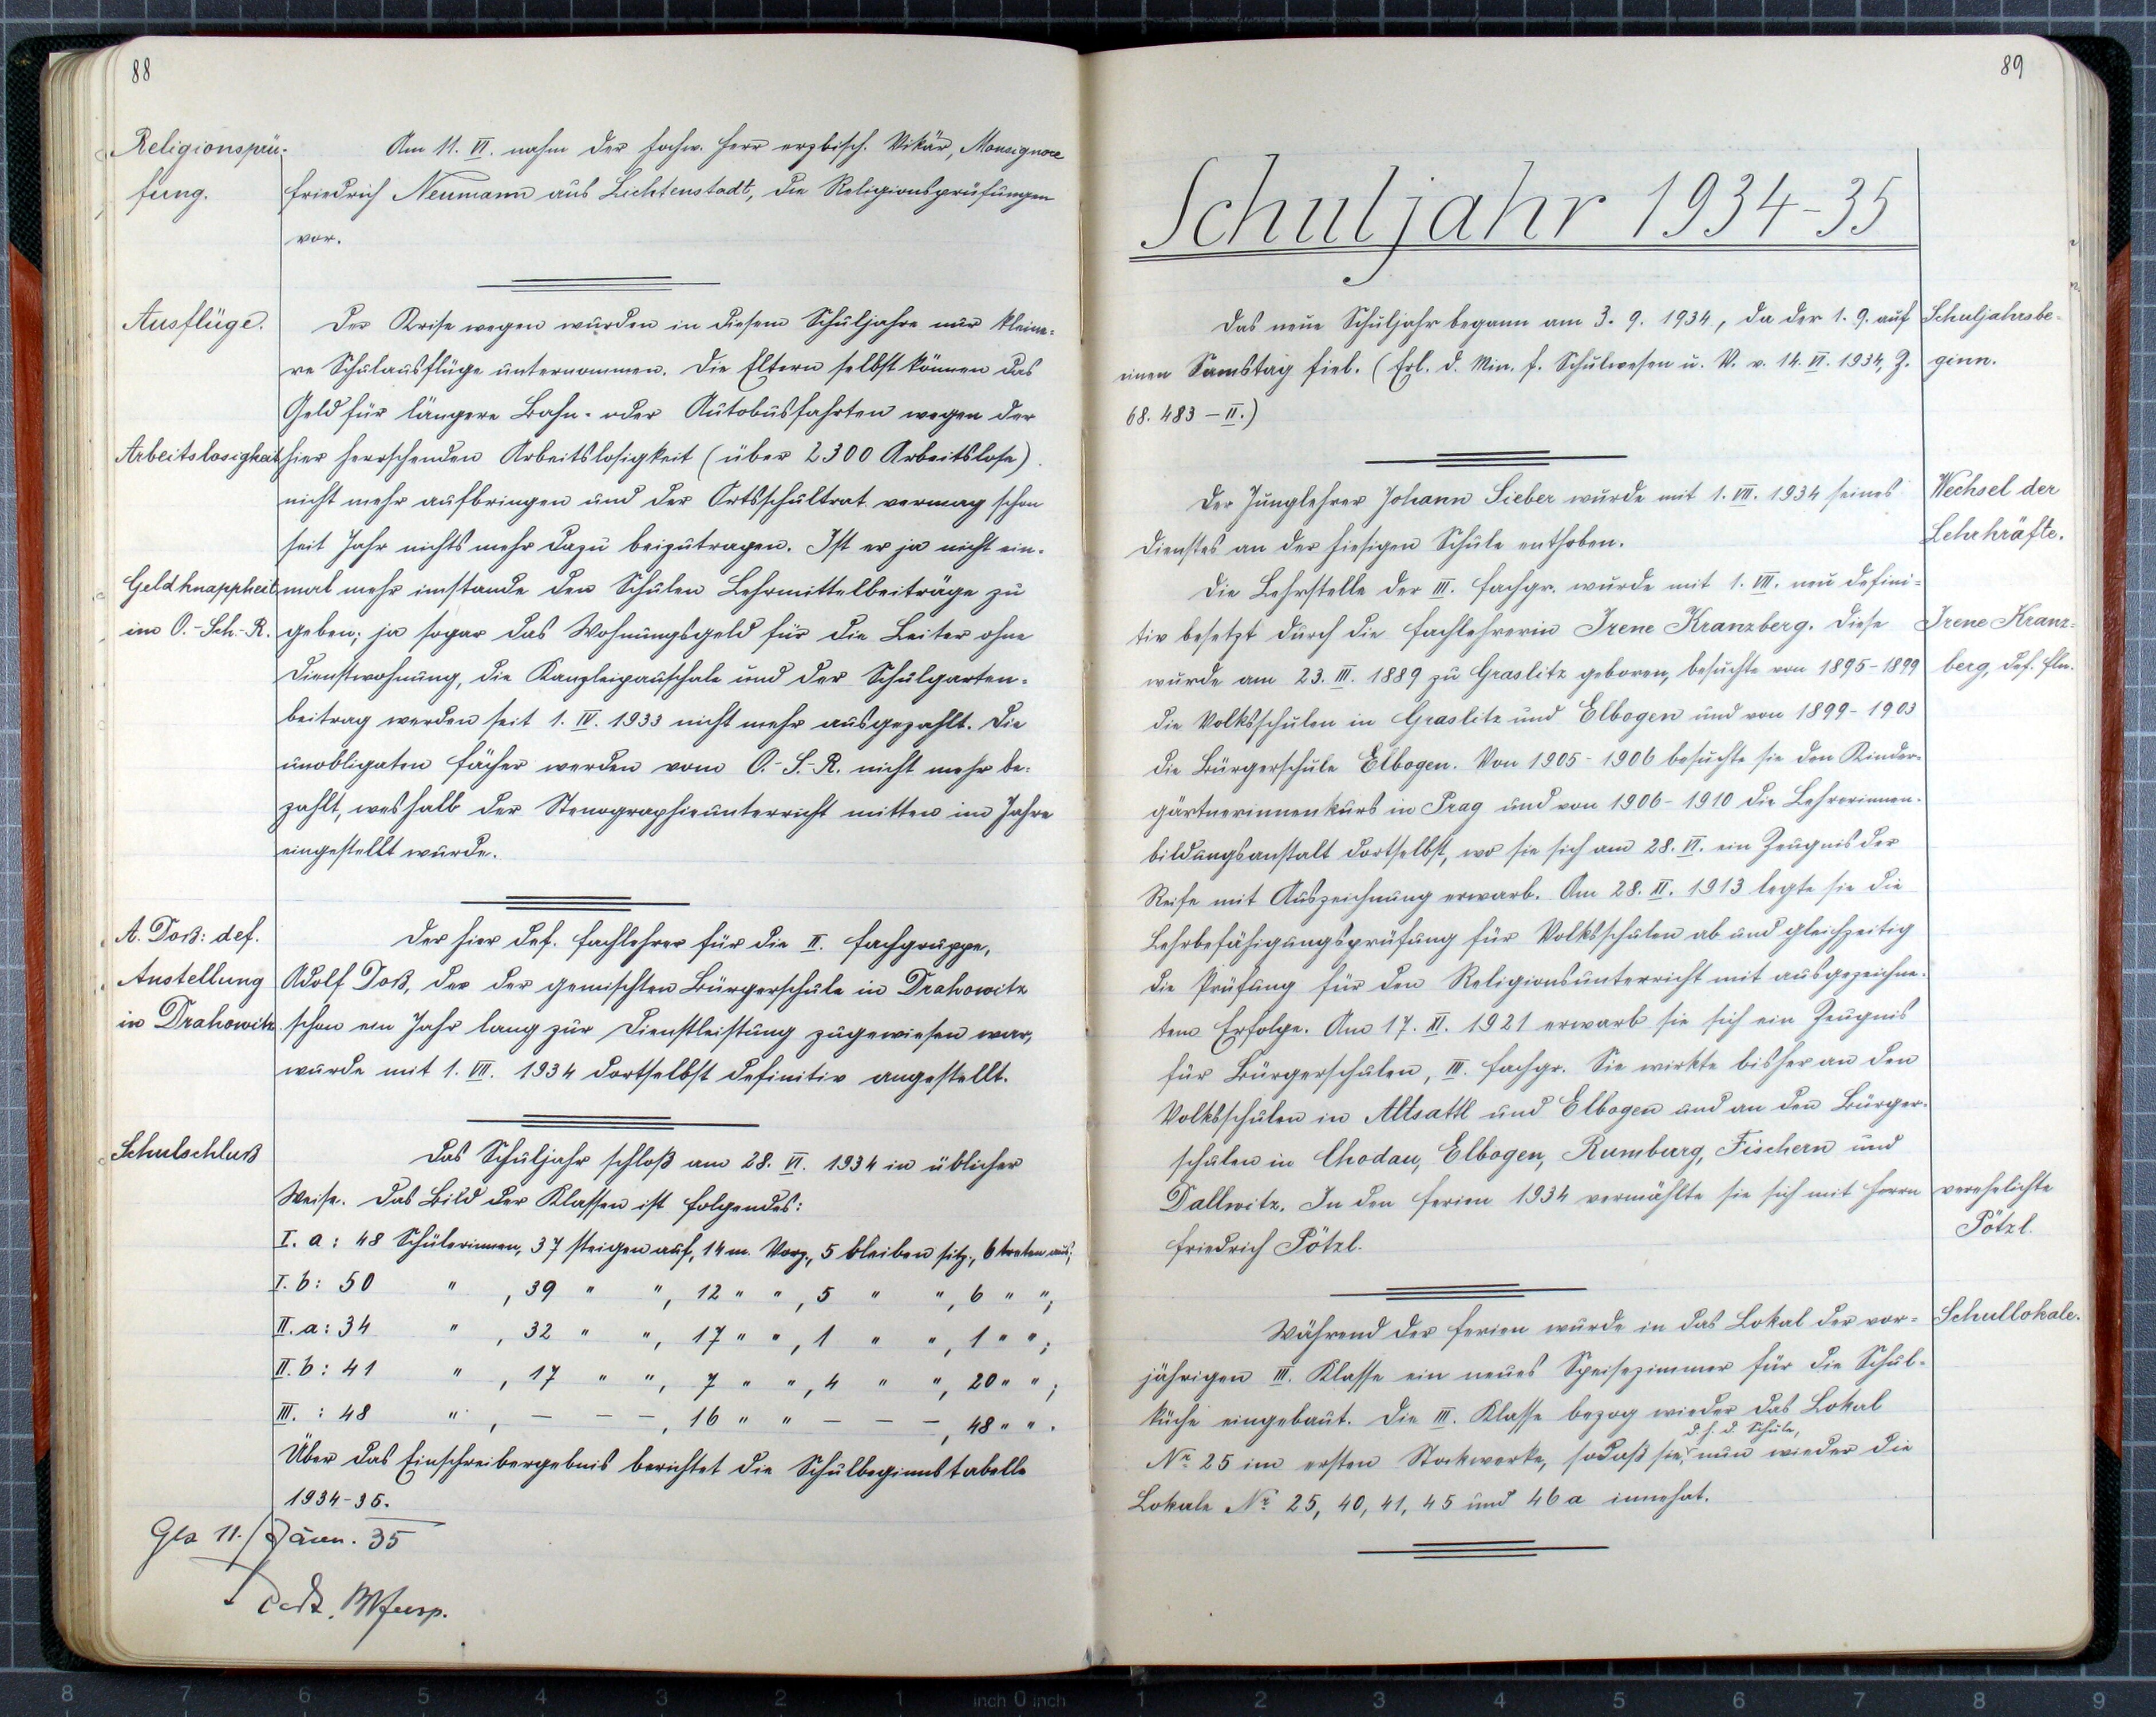 88
Religionsprü-
fung.
Am 11. VI. nahm der hochw. Herr erzbisch. Vikär, Monsignore
Friedrich Neumann aus Lichtenstadt, die Religionsprüfungen
vor.
Ausflüge.
Der Krise wegen wurden in diesem Schuljahre nur kleine-
re Schulausflüge unternommen. Die Eltern selbst können das
Geld für längere Bahn- oder Autobusfahrten wegen der
Arbeitslosigkeit
hier herrschenden Arbeitslosigkeit (über 2300 Arbeitslose)
nicht mehr aufbringen und der Ortsschultrat vermag schon
seit Jahr nichts mehr dazu beizutragen. Ist er ja nicht ein-
Geldknappheit
im O.-Sch.-R.
mal mehr imstande den Schulen Lehrmittelbeiträge zu
geben; ja sogar das Wohnungsgeld für die Leiter ohne
Dienstwohnung, die Kanzleipauschale und der Schulgarten-
beitrag werden seit 1. IV. 1933 nicht mehr ausgezahlt. Die
unobligaten Fächer werden vom O.-S.-R. nicht mehr be-
zahlt, weshalb der Stenographieunterricht mitten im Jahre
eingestellt wurde.
A. Doß: def.
Anstellung
in Drahowitz
Der hier def. Fachlehrer für die II. Fachgruppe,
Adolf Doß, der der gemischten Bürgerschule in Drahowitz
schon ein Jahr lang zur Dienstleistung zugewiesen war,
wurde mit 1. VII. 1934 dortselbst definitiv angestellt.
Schulschluß
Das Schuljahr schloß am 28. VI. 1934 in üblicher
Weise. Das Bild der Klassen ist folgendes:
I. a: 48 Schülerinnen, 37 steigen auf, 14 m. Vorz., 5 bleiben sitz., 6 treten aus;
I. b: 50 " , 39 " ", 12 " " , 5 " ", 6 " ";
II. a: 34 " , 32 " ", 17 " " , 1 " ", 1 " ";
II. b: 41 " , 17 " ", 7 " ", 4 " ", 20 " ";
III. : 48 " , – – –, 16 " " – – –, 48 " ".
Über das Einschreibergebnis berichtet die Schulbeginnstabelle
1934-35.
Ges 11./Jänn. 35
Doß, BSchInsp.
89
Schuljahr 1934-35
Das neue Schuljahr begann am 3. 9. 1934, da der 1. 9. auf
einen Samstag fiel. (Erl. d. Min. f. Schulwesen u. V. v. 14. VI. 1934, Z.
68. 483 – II.)
Schuljahrsbe-
ginn.
Der Junglehrer Johann Sieber wurde mit 1. VII. 1934 seines
Dienstes an der hiesigen Schule enthoben.
Wechsel der
Lehrkräfte.
Die Lehrstelle der III. Fachgr. wurde mit 1. VII. neu defini-
tiv besetzt durch die Fachlehrerin Irene Kranzberg. Diese
wurde am 23. III. 1889 zu Graslitz geboren, besuchte von 1895-1899
die Volksschulen in Graslitz und Elbogen und von 1899-1903
die Bürgerschule Elbogen. Von 1905-1906 besuchte sie den Kinder-
gärtnerinnenkurs in Prag und von 1906-1910 die Lehrerinnen-
bildungsanstalt dortselbst, wo sie sich am 28. VI. ein Zeugnis der
Reife mit Auszeichnung erwarb. Am 28. II. 1913 legte sie die
Lehrbefähigungsprüfung für Volksschulen ab und gleichzeitig
die Prüfung für den Religionsunterricht mit ausgezeichne-
tem Erfolge. Am 17. XI. 1921 erwarb sie sich ein Zeugnis
für Bürgerschulen, III. Fachgr. Sie wirkte bisher an den
Volksschulen in Altsattl und Elbogen und an den Bürger-
schulen in Chodau, Elbogen, Rumburg, Fischern und
Dallwitz. In den Ferien 1934 vermählte sie sich mit Herrn
Friedrich Pötzl.
Irene Kranz-
berg, def. Fln.
verehelichte
Pötzl.
Während der Ferien wurde in das Lokal der vor-
jährigen III. Klasse ein neues Speisezimmer für die Schul-
küche eingebaut. Die III. Klasse bezog wieder das Lokal
d. h. d. Schule,
Nr. 25 im ersten Stockwerke, sodaß sie, nun wieder die
Lokale Nr. 25, 40, 41, 45 und 46a innehat.
Schullokale.
8 7 6 5 4 3 2 1 inch 0 inch 1 2 3 4 5 6 7 8 9